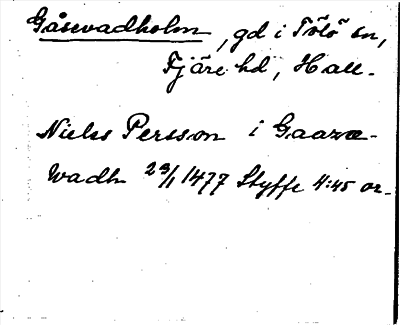 Gåsevadholm, gd i Tölö sn,
Fjäre hd, Hall.
Nielss Persson i Gaazæ-
wadh 29/1 1477 Styffe 4:45 or.